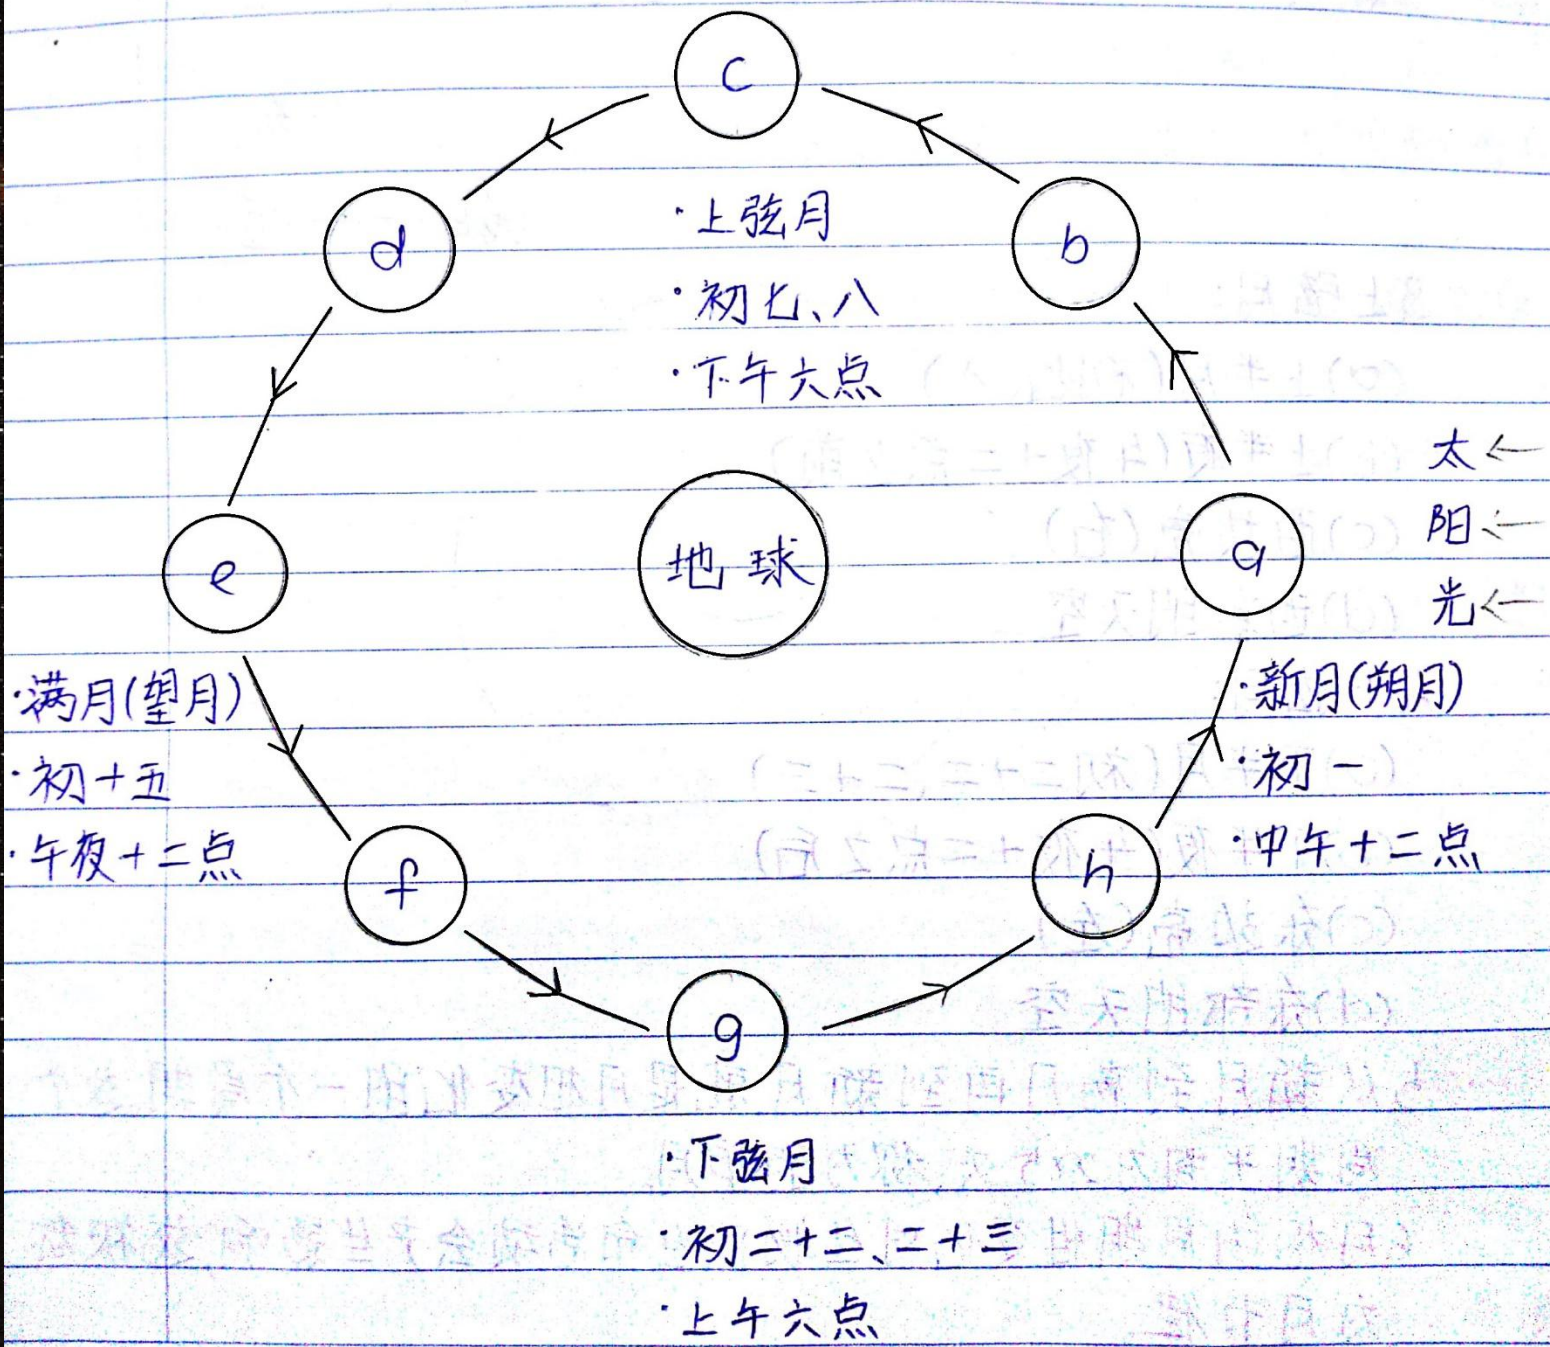 c
d
b
·上弦月
·初七、八
·下午六点
太
阳
光
e
地球
a
·满月(望月)
·初十五
·午夜十二点
·新月(朔月)
·初一
·中午十二点
f
h
g
·下弦月
·初二十二、二十三
·上午六点